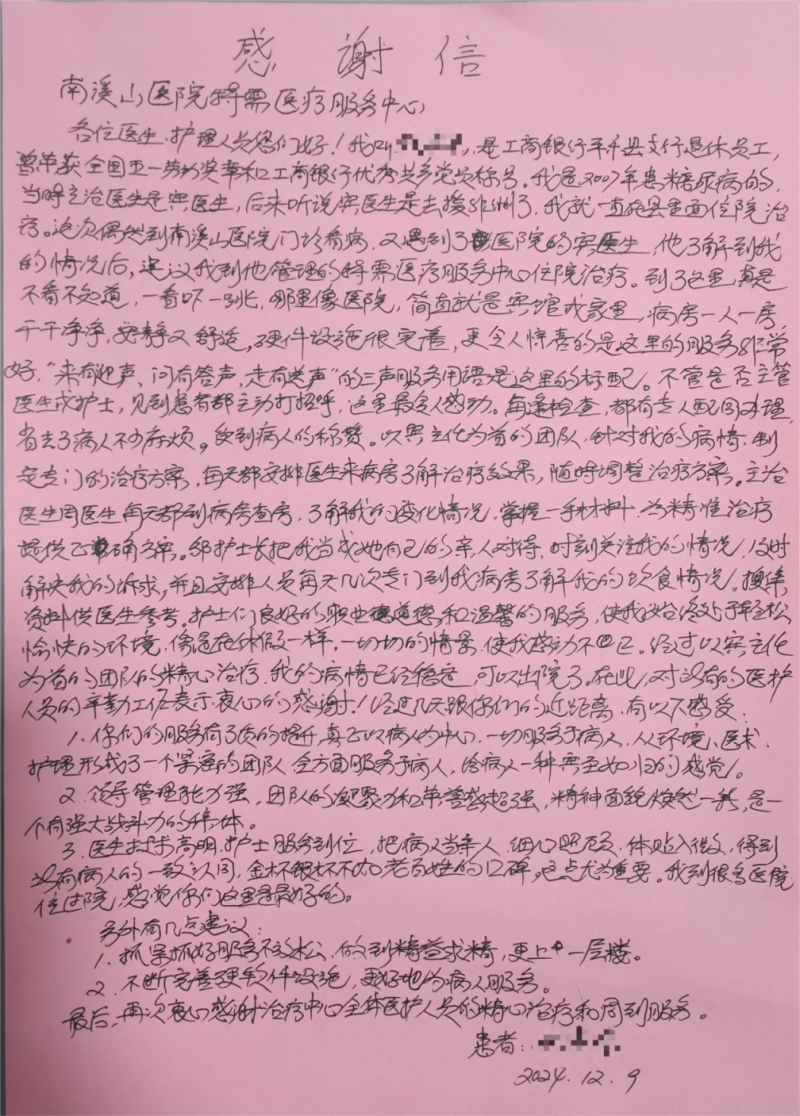 感谢信
南溪山医院特需医疗服务中心
各位医生、护理人员您们好！我叫，是工商银行平乐县支行退休员工，
曾荣获全国五一劳动奖章和工商银行优秀共产党员称号。我是2007年患糖尿病的，
当时主治医生是宾医生，后来听说宾医生是去援非洲了，我就一直在县里面住院治
疗。这次偶然到南溪山医院门诊看病，又遇到了医院的宾医生，他了解到我
的情况后，建议我到他管理的特需医疗服务中心住院治疗。到了这里，真是
不看不知道，一看吓一跳，哪里像医院，简直就是宾馆或家里，病房一人一房，
干干净净，安静又舒适，硬件设施很完善，更令人惊喜的是这里的服务非常
好，“来有迎声、问有答声，走有送声”的三声服务用语是这里的标配。不管是否主管
医生或护士，见到患者都主动打招呼，这里最令人感动。每逢检查，都有专人配同办理，
省去了病人不少麻烦。受到病人的称赞。以宾主任为首的团队，针对我的病情，制
定专门的治疗方案，每天都安排医生来病房了解治疗效果，随时调整治疗方案。主治
医生周医生每天都到病房查房，了解我的变化情况，掌握一手材料，为精准治疗
提供正确方案。邹护士长把我当成她自己的亲人对待，时刻关注我的情况，及时
解决我的诉求，并且安排人员每天几次专门到我病房了解我的饮食情况。搜集
资料供医生参考。护士们良好的职业道德和温馨的服务，使我始终处于轻松
愉快的环境，像是在休假一样。一切切的情景，使我感动不已。经过以宾主任
为首的团队的精心治疗，我的病情已经稳定，可以出院了。在此，对所有的医护
人员的辛勤工作表示衷心的感谢！经过几天跟你们的近距离，有以下感受：
1、你们的服务有了质的提升，真正以病人为中心，一切服务于病人，从环境、医术、
护理形成了一个紧密的团队，全方面服务于病人，给病人一种宾至如归的感觉。
2、领导管理能力强，团队的凝聚力和荣誉感超强，精神面貌焕然一新，是一
个有强大战斗力的集体。
3、医生技术高明，护士服务到位，把病人当亲人，细心照顾、体贴入微，得到
所有病人的一致认同，金杯银杯不如老百姓的口碑，这点尤为重要。我到很多医院
住过院，感觉你们这里是最好的。
另外有几点建议：
1、抓紧抓好服务不放松，做到精益求精，更上一层楼。
2、不断完善硬软件设施，更好地为病人服务。
最后，再次衷心感谢治疗中心全体医护人员的精心治疗和周到服务。
患者：
2024.12.9